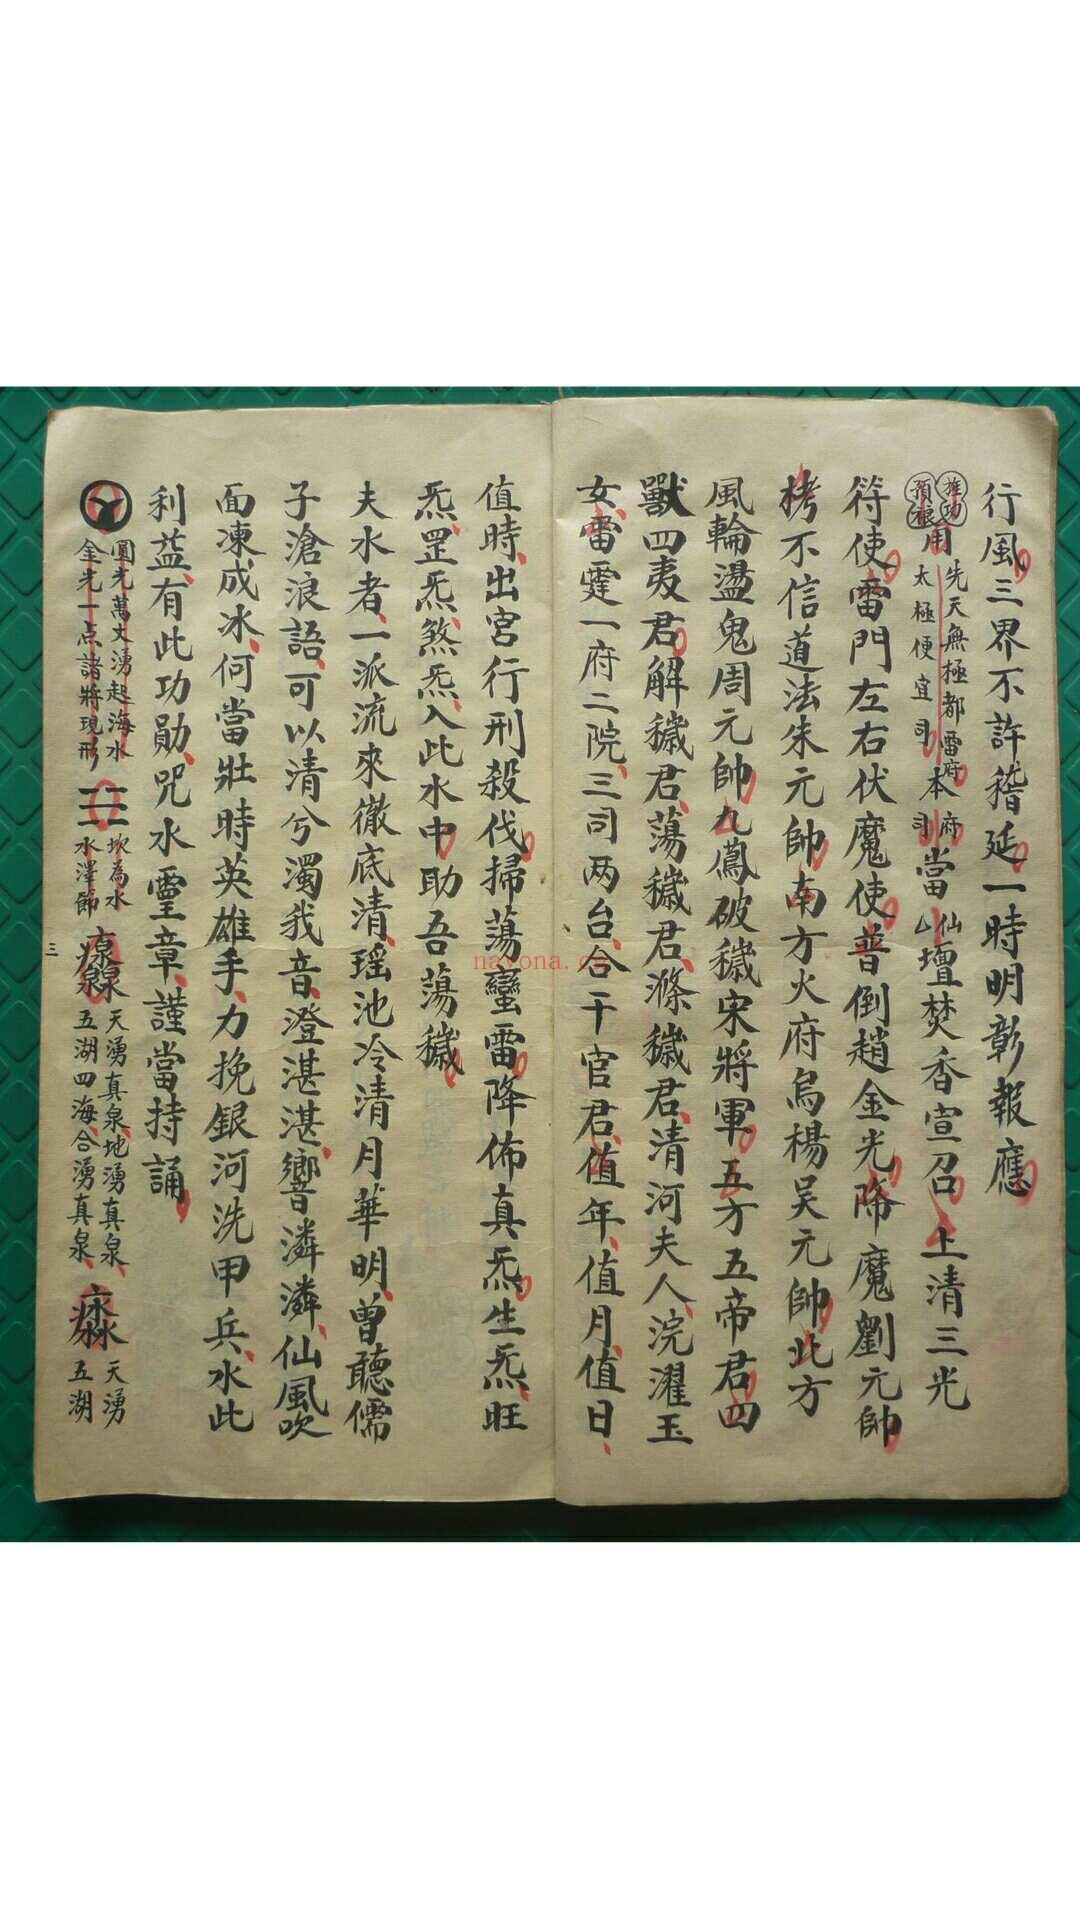 行風三界不許稽延一時明彰報應
用 先天無極都雷府 太極便宜司 本府司當仙壇焚香宣召上清三光
符使雷門左右伏魔使普倒趙金光降魔劉元帥
栲不信道法朱元帥南方火府烏楊吴元帥北方
風輪盪鬼周元帥九鳳破穢宋將軍五方五帝君四
獸四夷君解穢君蕩穢君滌穢君清河夫人浣濯玉
女雷霆一府二院三司两台合干官君值年值月值日
值時出宮行刑殺伐掃蕩蠻雷降佈真炁生炁旺
炁罡炁煞炁入此水中助吾蕩穢
夫水者一派流來徹底清瑶池冷清月華明曾聽儒
子滄浪語可以清兮濁我音澄湛湛響潾潾仙風吹
面凍成冰何當壯時英雄手力挽銀河洗甲兵水此
利益有此功勛咒水靈章謹當持誦
圓光萬丈湧起海水
金光一点諸將現形
坎為水
水澤節
天湧真泉地湧真泉
五湖四海合湧真泉
天湧
五湖
三
nayona.cn